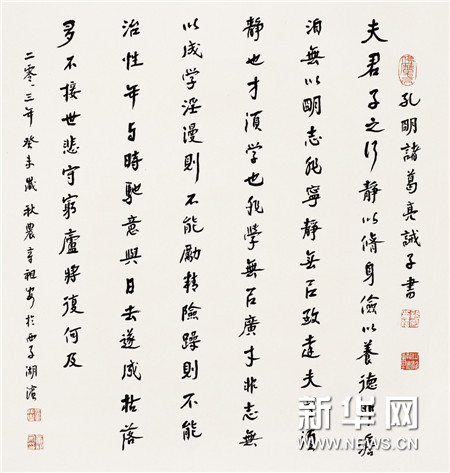 孔明諸葛亮誡子書
夫君子之行靜以脩身儉以養德非澹
泊無以明志非寧靜無以致遠夫學須
靜也才須学也非學無以廣才非志無
以成学淫漫則不能勵精險躁則不能
治性年与時馳意與日去遂成枯落
多不接世悲守窮廬將復何及
二零〻三年癸未歲秋農 祖安於西子湖濱
新华网